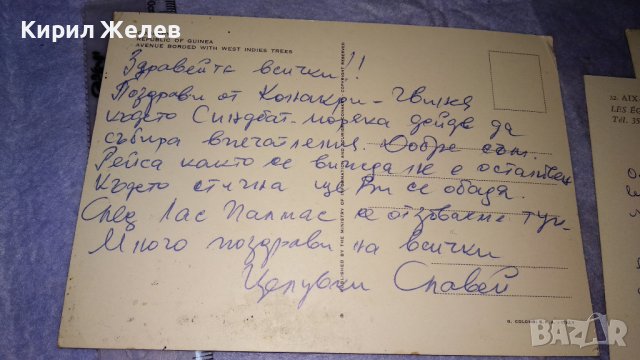 Кирил Желев
REPUBLIC OF GUINEA
AVENUE BORDED WITH WEST INDIES TREES
Здравейте всички!!
Поздрави от Конакри - Гвинея
където Синдбат-моряка дойде да
събира впечатления. Добре съм.
Рейса както се вижда не е останвен
Където стигна ще Ви се обадя.
След Лас Палмас се отзоваеме тук.
Много поздрави на всички
Целувки Славей
PUBLISHED BY THE MINISTRY OF INFORMATION AND TOURISM
COPYRIGHT RESERVED
32. AIX
LES
Tél. 35
bazar.bg